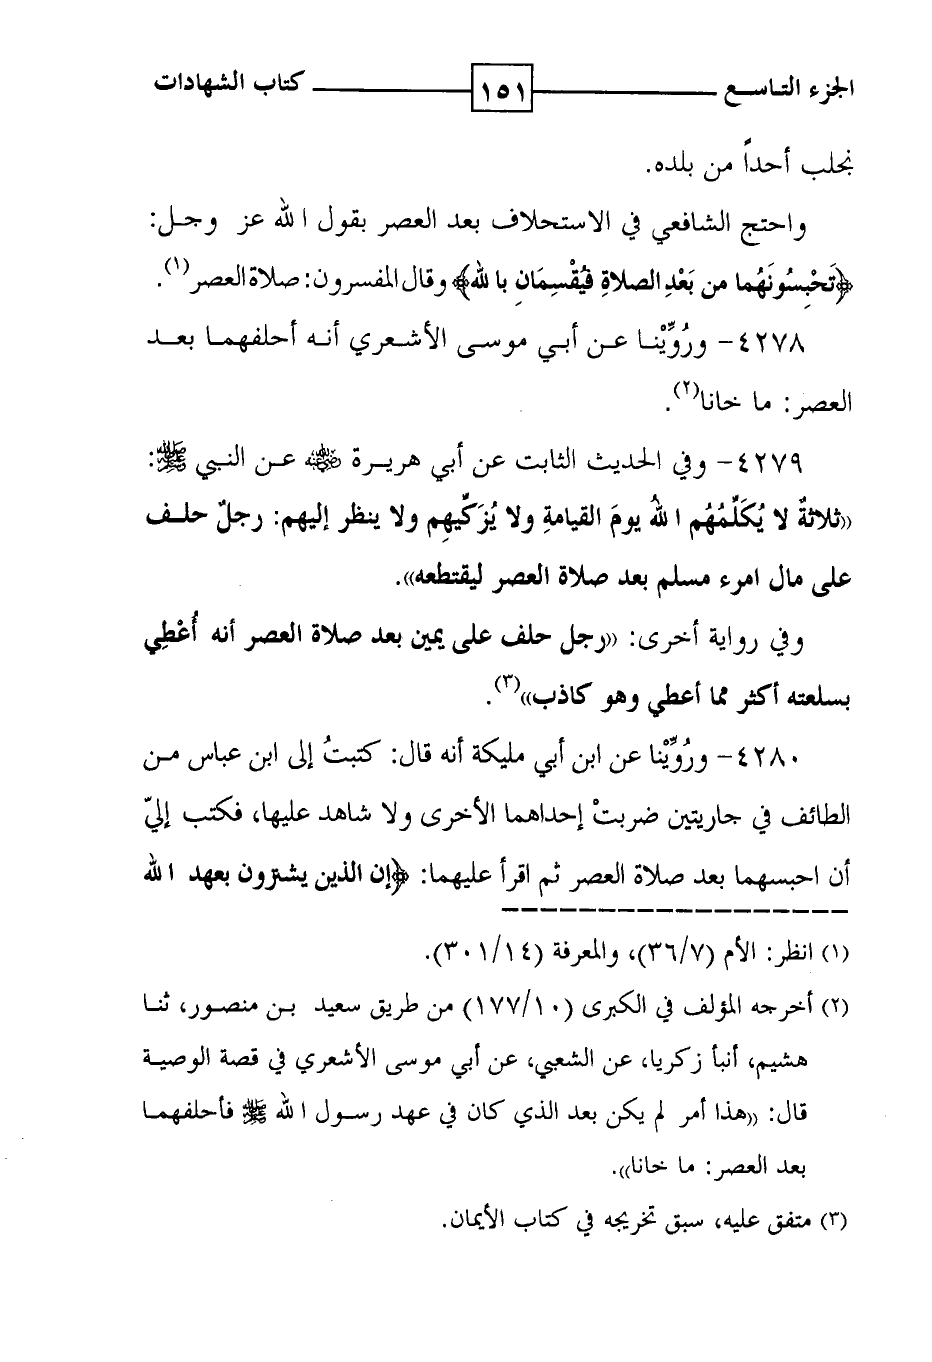 الجزء التاسع ١٥١ كتاب الشهادات
نجلب أحداً من بلده.
واحتج الشافعي في الاستحلاف بعد العصر بقول الله عز وجل:
﴿تَحْبِسُونَهُما من بَعْدِ الصلاةِ فيُقْسِمَانِ بالله﴾ وقال المفسرون: صلاة العصر(١).
٤٢٧٨- ورُوِّيْنا عن أبي موسى الأشعري أنه أحلفهما بعد
العصر: ما خانا(٢).
٤٢٧٩- وفي الحديث الثابت عن أبي هريرة رضي الله عنه عن النبي ﷺ:
((ثلاثةٌ لا يُكَلِّمُهُم اللهُ يومَ القيامةِ ولا يُزَكِّيهِم ولا ينظر إليهم: رجلٌ حلف
على مال امرء مسلم بعد صلاة العصر ليقتطعه)).
وفي رواية أخرى: ((رجل حلف على يمين بعد صلاة العصر أنه أُعْطِي
بسلعته أكثر مما أعطي وهو كاذب))(٣).
٤٢٨٠- ورُوِّيْنا عن ابن أبي مليكة أنه قال: كتبتُ إلى ابن عباس من
الطائف في جاريتين ضربتْ إحداهما الأخرى ولا شاهد عليها، فكتب إليّ
أن احبسهما بعد صلاة العصر ثم اقرأ عليهما: ﴿إن الذين يشترون بعهد الله
(١) انظر: الأم (٣٦/٧)، والمعرفة (٣٠١/١٤).
(٢) أخرجه المؤلف في الكبرى (١٧٧/١٠) من طريق سعيد بن منصور، ثنا
هشيم، أنبأ زكريا، عن الشعبي، عن أبي موسى الأشعري في قصة الوصية
قال: ((هذا أمر لم يكن بعد الذي كان في عهد رسول الله ﷺ فأحلفهما
بعد العصر: ما خانا)).
(٣) متفق عليه، سبق تخريجه في كتاب الأيمان.